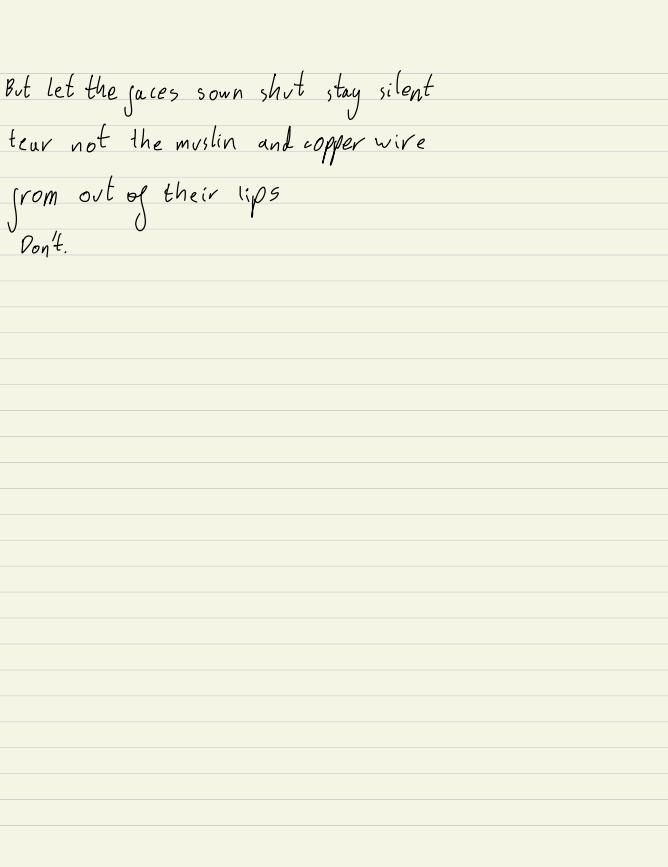 But let the faces sown shut stay silent
tear not the muslin and copper wire
from out of their lips
Don't.